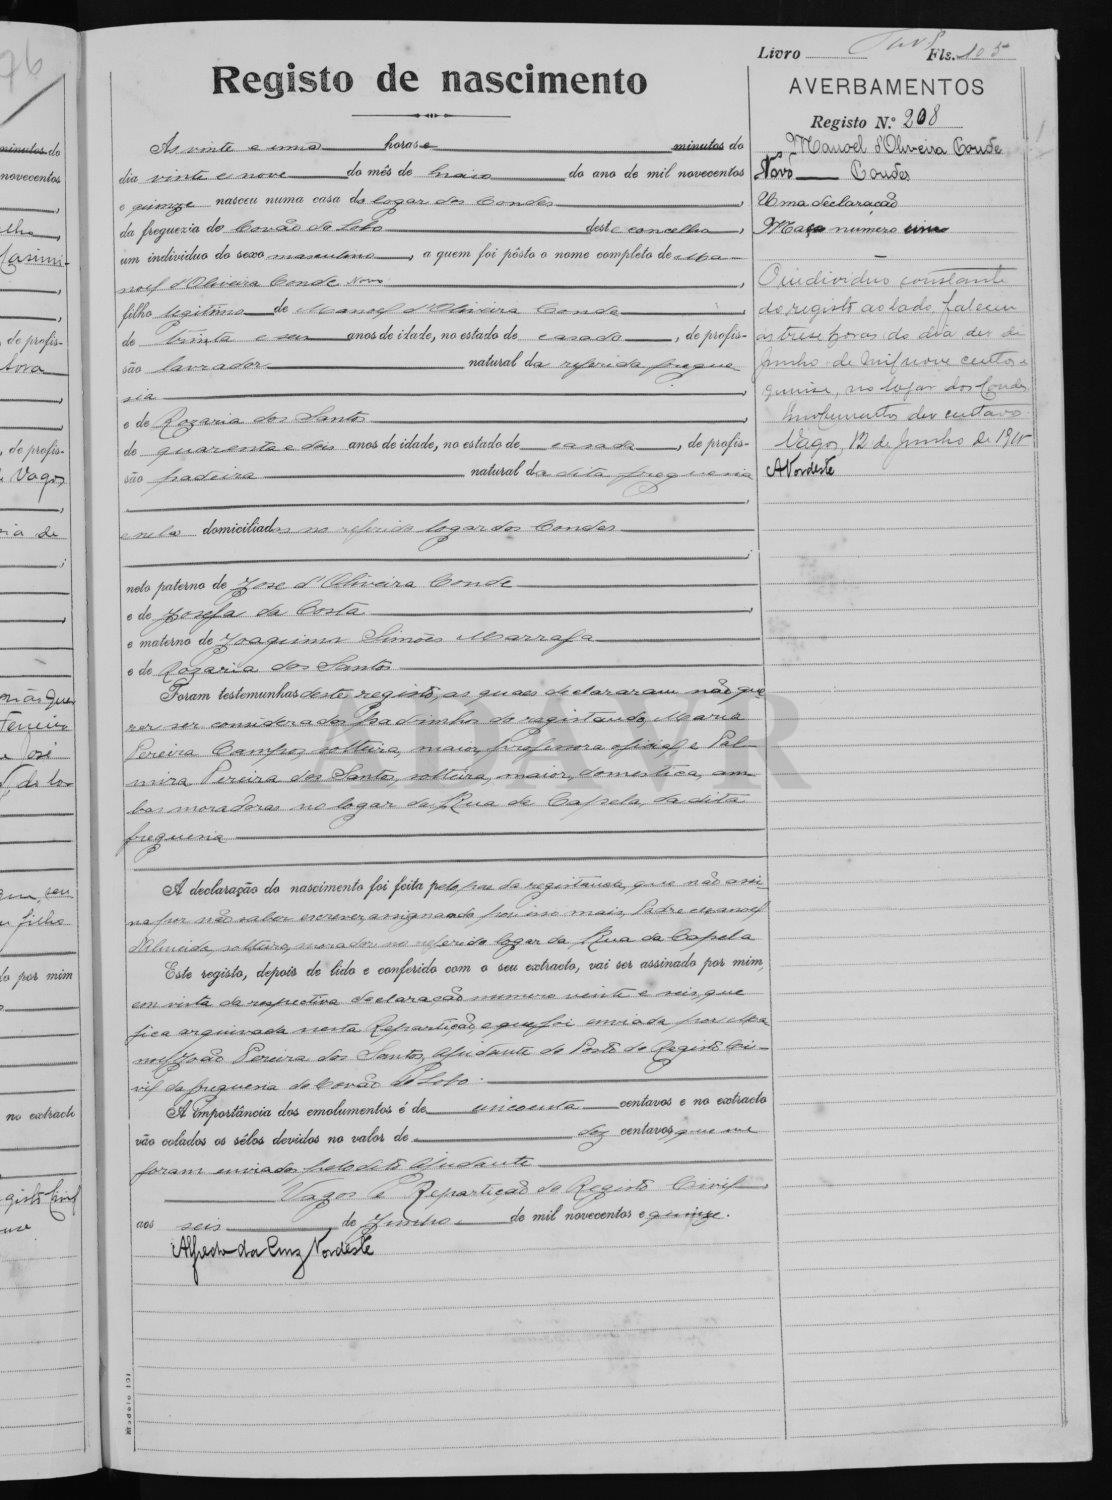 Livro Fls. 105
Registo de nascimento
Às vinte e uma horas e minutos do
dia vinte e nove do mês de maio do ano de mil novecentos
e quinze nasceu numa casa do logar dos Condes,
da freguesia de Covão do Lobo deste concelho,
um indivíduo do sexo masculino, a quem foi pôsto o nome completo de Ma-
noel d'Oliveira Conde Novo,
filho legitimo de Manoel d'Oliveira Conde,
de trinta e um anos de idade, no estado de casado, de profis-
são lavrador natural da referida fregue
sia,
e de Rozaria dos Santos
de quarenta e dois anos de idade, no estado de casada, de profis-
são padeira natural da dita freguesia
e nela domiciliados no referido logar dos Condes
neto paterno de Jose d'Oliveira Conde
e de Josefa da Costa,
e materno de Joaquim Simões Marrafa
e de Rozaria dos Santos
Foram testemunhas deste registo, as quaes declararam não que
rer ser considerados padrinhos do registando, Maria
Pereira Campos, solteira, maior, professora oficial e Pal-
mira Pereira dos Santos, solteira, maior, domestica, am-
bas moradoras no logar da Rua da Capela, da dita
freguesia
A declaração do nascimento foi feita pelo pae do registando, que não assi-
na por não saber escrever, assignando por isso mais, Padre Manoel
d'Almeida, solteiro, morador no referido logar da Rua da Capela
Este registo, depois de lido e conferido com o seu extracto, vai ser assinado por mim,
em vista da respectiva declaração numero vinte e seis, que
fica arquivada nesta Repartição, e que foi enviada por Ma
noel João Pereira dos Santos, Ajudante do Posto do Registo Ci-
vil da freguesia de Covão do Lobo.
A importância dos emolumentos é de cincoenta centavos e no extracto
vão colados os sêlos devidos no valor de dez centavos, que me
foram enviados pelo dito Ajudante
Vagos e Repartição do Registo Civil
aos seis de Junho de mil novecentos e quinze.
Alfredo da Cruz Nordeste
AVERBAMENTOS
Registo N.º 208
Manoel d'Oliveira Conde
Novo Condes
Uma declaração
Maço numero um
O individuo constante
do registo ao lado, faleceu
ás treze horas do dia dez de
Junho de mil nove centos e
quinze, no logar dos Condes
Emolumentos dez centavos.
Vagos, 12 de Junho de 1915
ANordeste
ADAVR
Modelo 101
76
minutos do
novecentos
de profis-
de profis-
Vagos
filho
por mim
no extracto